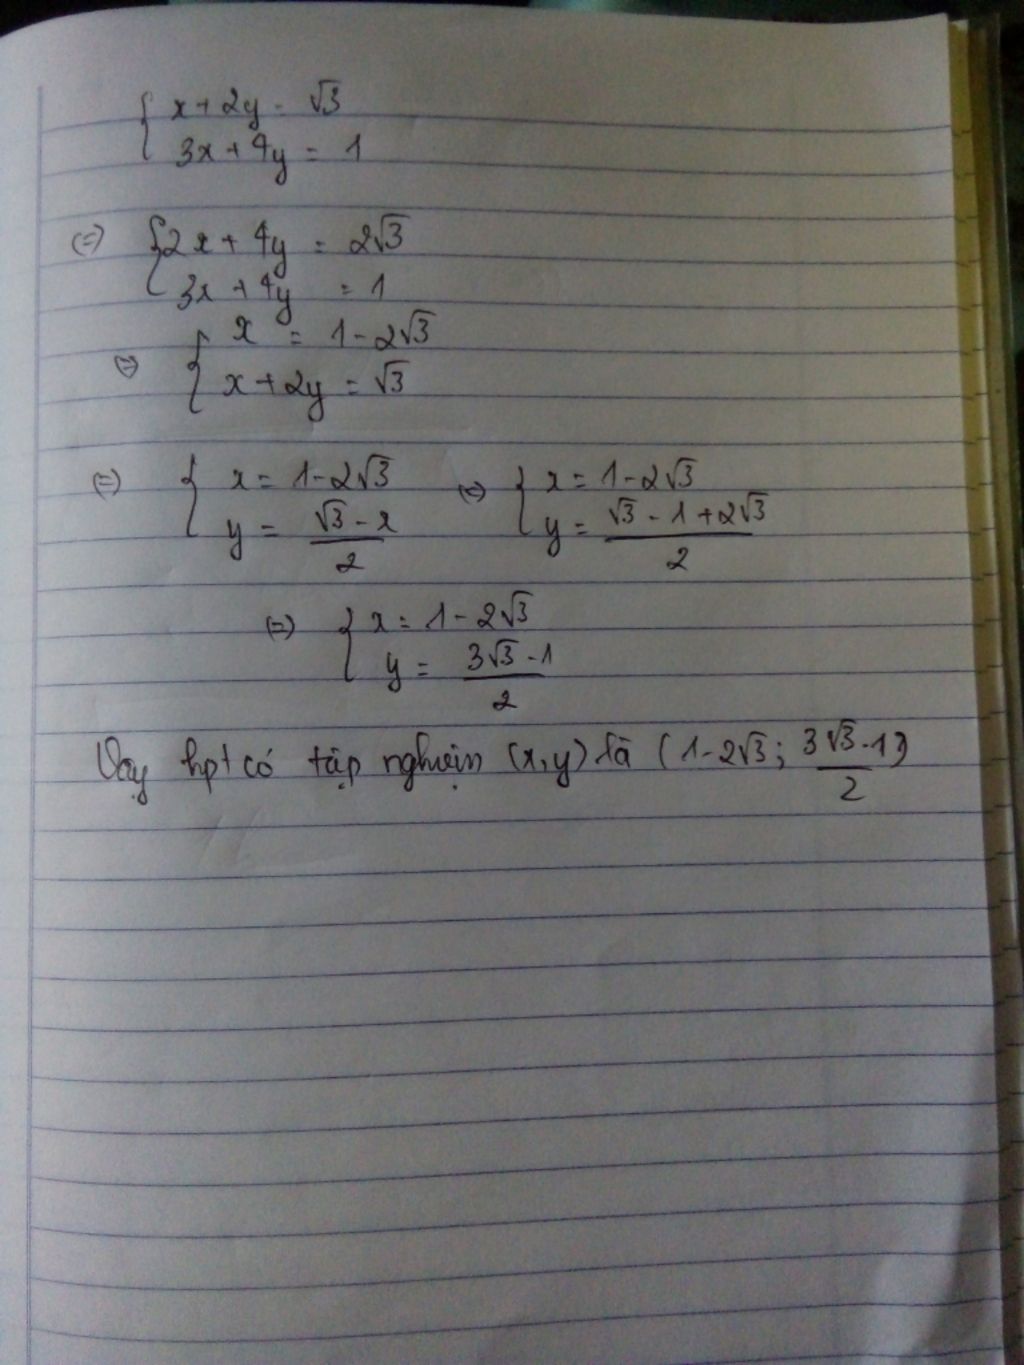 { x + 2y = √3
3x + 4y = 1
(=) { 2x + 4y = 2√3
3x + 4y = 1
(=) { x = 1 - 2√3
x + 2y = √3
(=) { x = 1 - 2√3 (=) { x = 1 - 2√3
y = (√3 - x)/2 y = (√3 - 1 + 2√3)/2
(=) { x = 1 - 2√3
y = (3√3 - 1)/2
Vậy hpt có tập nghiệm (x,y) là (1-2√3; (3√3-1)/2)